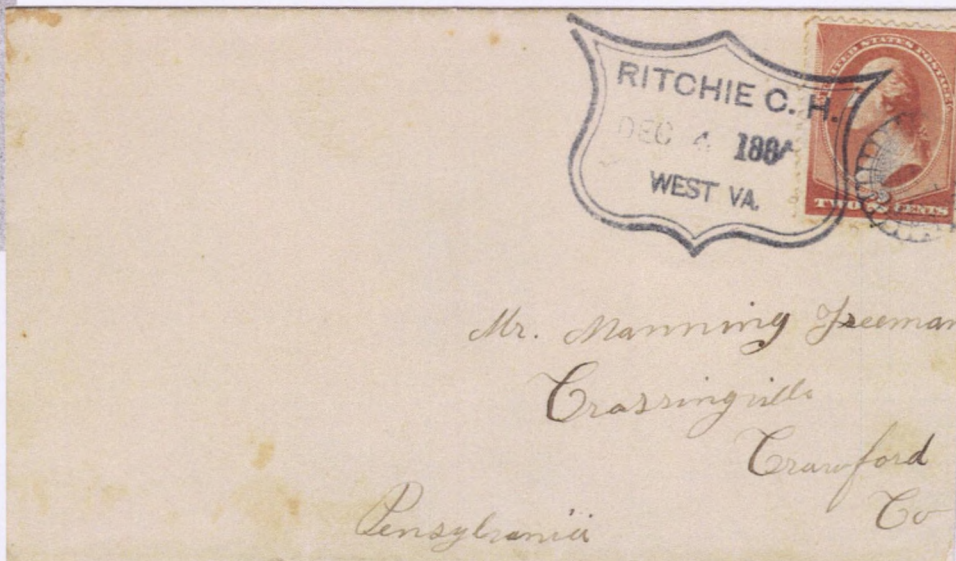 RITCHIE C. H.
DEC 4 188
WEST VA.
UNITED STATES POSTAGE
TWO 2 CENTS
Mr. Manning Freeman
Crossingville
Crawford
Co
Pensylvania